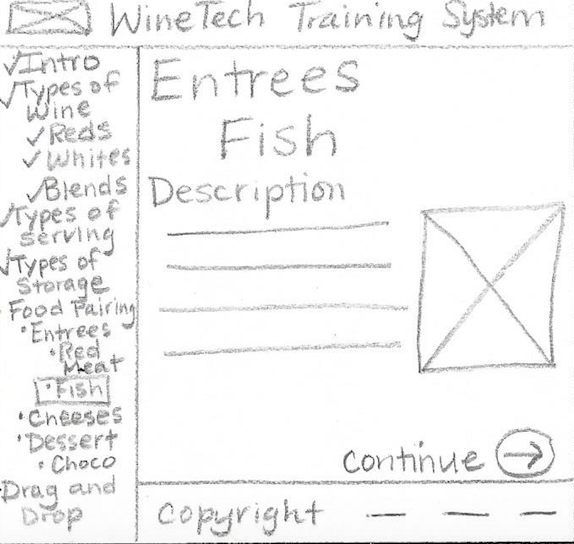 WineTech Training System
✓Intro
✓Types of
Wine
✓Reds
✓Whites
✓Blends
✓Types of
Serving
✓Types of
Storage
• Food Pairing
• Entrees
• Red
Meat
• Fish
• Cheeses
• Dessert
• Choco
• Drag and
Drop
Entrees
Fish
Description
Continue →
Copyright